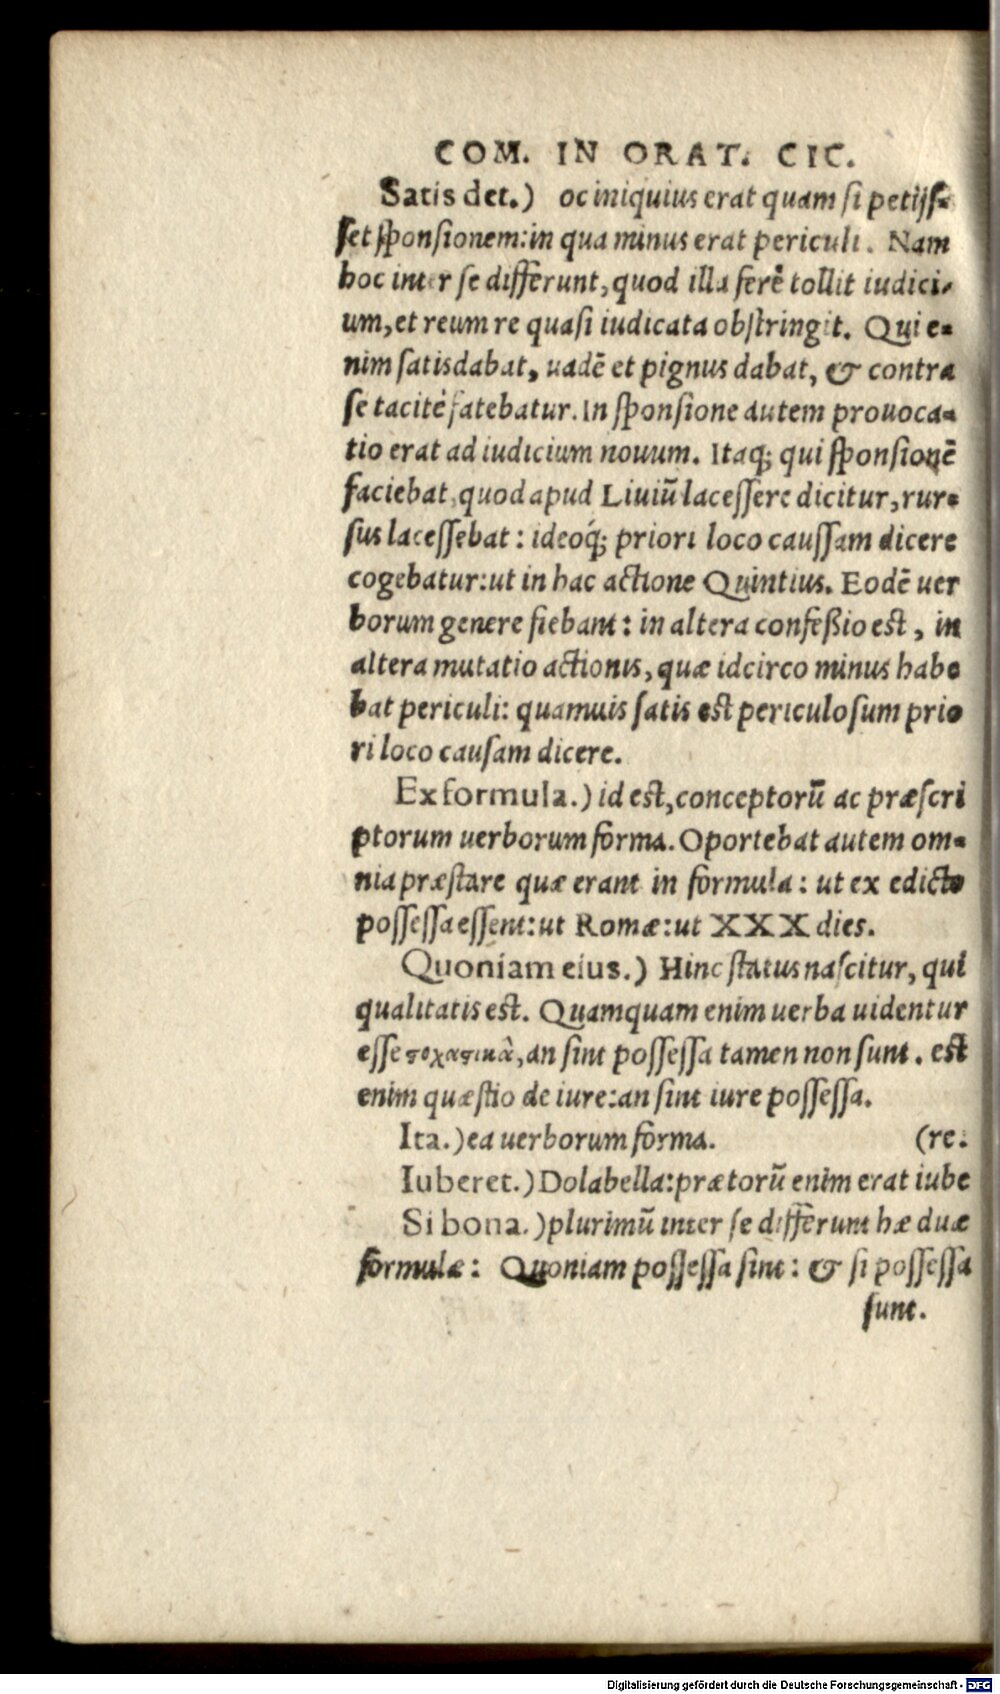 COM. IN ORAT. CIC.
Satis det.) oc iniquius erat quam si petijs-
set sponsionem: in qua minus erat periculi. Nam
hoc inter se differunt, quod illa ferè tollit iudici-
um, et reum re quasi iudicata obstringit. Qui e-
nim satisdabat, uadē et pignus dabat, & contra
se tacitè fatebatur. In sponsione autem prouoca-
tio erat ad iudicium nouum. Itaq; qui sponsionē
faciebat, quod apud Liuiū lacessere dicitur, rur-
sus lacessebat: ideoq́; priori loco caussam dicere
cogebatur: ut in hac actione Quintius. Eodē uer
borum genere fiebant: in altera confeßio est, in
altera mutatio actionis, quæ idcirco minus habe
bat periculi: quamuis satis est periculosum prio
ri loco causam dicere.
Ex formula.) id est, conceptorū ac præscri
ptorum uerborum forma. Oportebat autem om-
nia præstare quæ erant in formula: ut ex edicto
possessa essent: ut Romæ: ut XXX dies.
Quoniam eius.) Hinc status nascitur, qui
qualitatis est. Quamquam enim uerba uidentur
esse ςοχαςικὰ, an sint possessa tamen non sunt. est
enim quæstio de iure: an sint iure possessa.
Ita.) ea uerborum forma. (re.
Iuberet.) Dolabella: prætorū enim erat iube
Si bona.) plurimū inter se differunt hæ duæ
formulæ: Quoniam possessa sint: & si possessa
sunt.
Digitalisierung gefördert durch die Deutsche Forschungsgemeinschaft - DFG